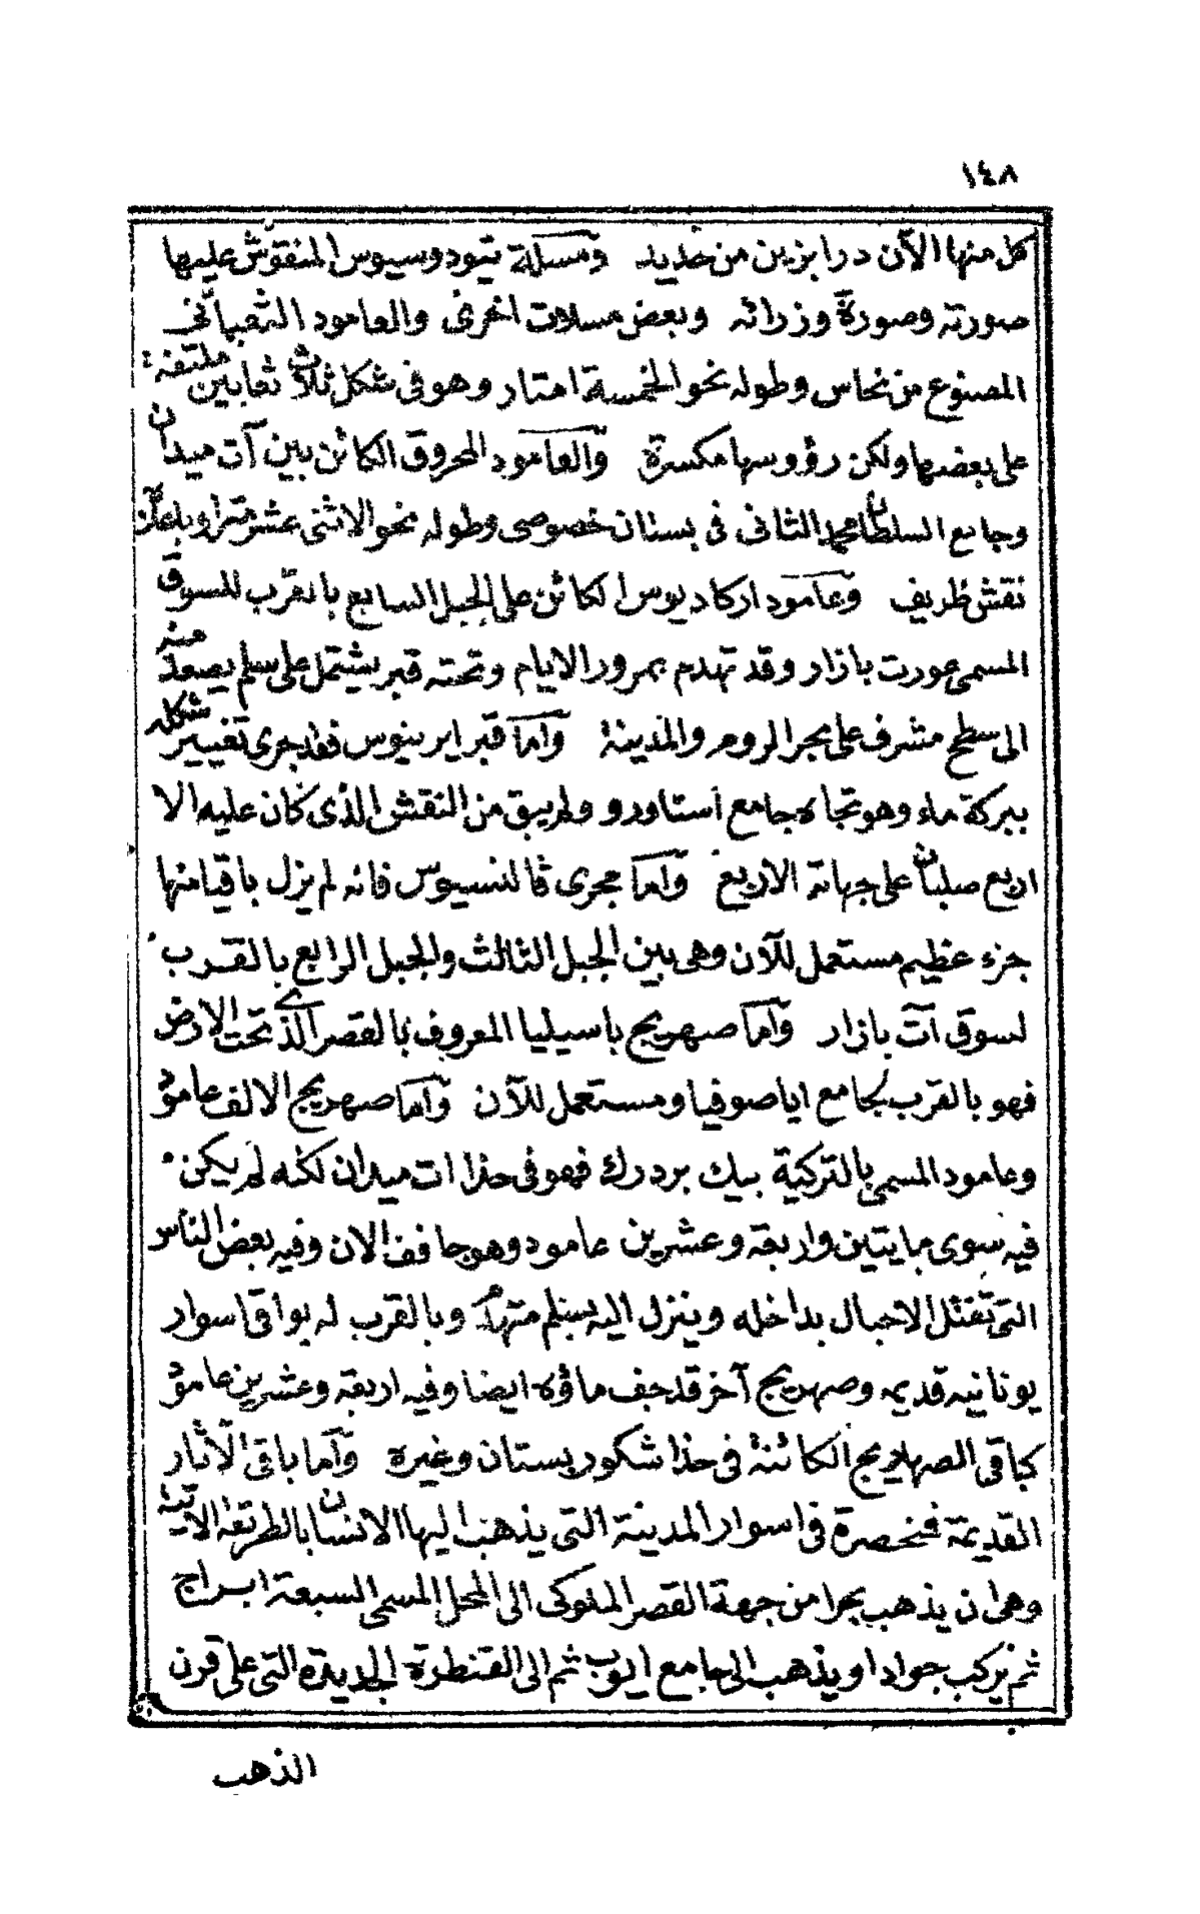 ١٤٨
كل منها الآن درابزين من حديد ومسلة تيودوسيوس المنقوش عليها
صورته وصورة وزرائه وبعض مسلات اخرى والعامود الثعبانى
المصنوع من نحاس وطوله نحو الخمسة امتار وهو فى شكل ثلاث ثعابين ملتفة
على بعضها ولكن رؤوسها مكسرة والعامود المحروق الكائن بين آت ميدان
وجامع السلطان محمد الثانى فى بستان خصوصى وطوله نحو الاثنى عشر مترا وباعلاه
نقش ظريف وعامود اركاديوس الكائن على الجبل السابع بالقرب للسوق
المسمى عورت بازار وقد تهدم بمرور الايام وتحته قبر يشتمل على سلم يصعد منه
الى سطح مشرف على بحر الروم والمدينة وأما قبر ايرينوس فقد جرى تغيير شكله
ببركة ماء وهو تجاه جامع استاورو ولم يبق من النقش الذى كان عليه الا
اربع صلبان على جهاته الاربع وأما مجرى فالنسيوس فانه لم يزل باقيا منها
جزء عظيم مستعمل للآن وهى بين الجبل الثالث والجبل الرابع بالقرب
لسوق آت بازار وأما صهريج باسيليا المعروف بالقصر الذى تحت الارض
فهو بالقرب لجامع اياصوفيا ومستعمل للآن وأما صهريج الالف عامود
وعامود المسمى بالتركية بيك بردرك فهو فى حذا ات ميدان لكنه لم يكن
فيه سوى مايتين واربعة وعشرين عامود وهو جافف الان وفيه بعض الناس
التى تفتل الاحبال بداخله وينزل اليه بسلم متهدم وبالقرب له بواقى اسوار
يونانيه قديمه وصهريج آخر قد جف ماؤه ايضا وفيه اربعة وعشرين عامود
كباقى الصهاريج الكائنة فى حذا شكور بستان وغيره وأما باقى الآثار
القديمة فمنحصرة فى اسوار المدينة التى يذهب اليها الانسان بالطريقة الآتية
وهى ان يذهب بحرا من جهة القصر الملوكى الى المحل المسمى السبعة ابراج
ثم يركب جوادا ويذهب الى جامع ايوب ثم الى القنطرة الجديدة التى على قرن
الذهب